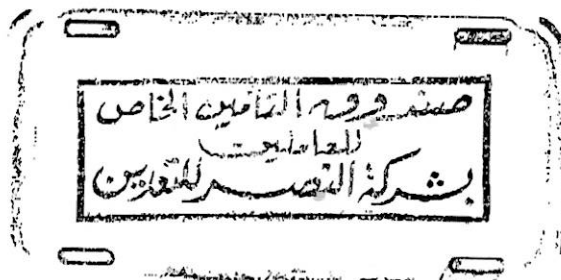 صندوق التأمين الخاص
للعاملين
بشركة النصر للتعدين